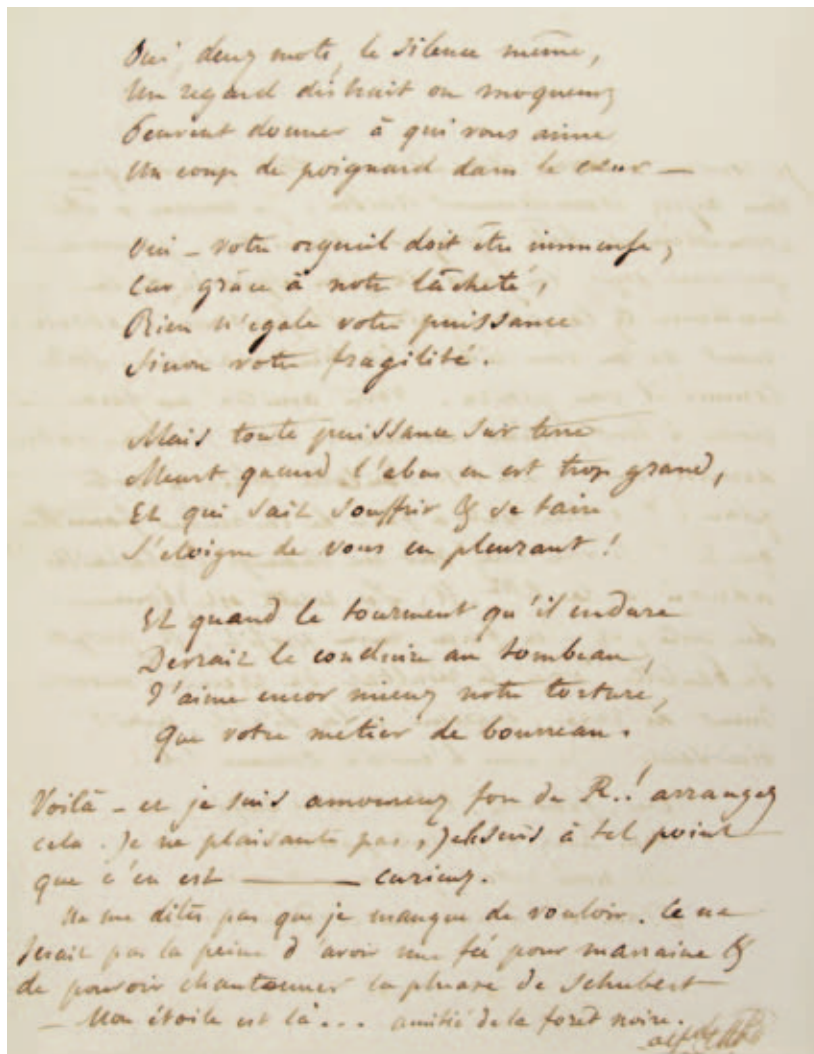 Oui, deux mots, le silence même,
Un regard distrait ou moqueur,
Peuvent donner à qui vous aime
Un coup de poignard dans le cœur —
Oui – votre orgueil doit être immense,
Car grâce à notre lâcheté,
Rien n'égale votre puissance
Sinon votre fragilité.
Mais toute puissance sur terre
Meurt quand l'abus en est trop grand,
Et qui sait souffrir & se taire
S'eloigne de vous en pleurant !
Et quand le tourment qu'il endure
Devrait le conduire au tombeau,
J'aime encor mieux notre torture,
Que votre métier de bourreau.
Voilà – et je suis amoureux fou de R..! arrangez
cela. Je ne plaisante pas, je le suis à tel point
que c'en est ——— curieux.
Ne me dites pas que je manque de vouloir. Ce ne
serait pas la peine d'avoir une fée pour marraine &
de pouvoir chantonner la phrase de Schubert
— Mon étoile est là... amitié de la foret noire.